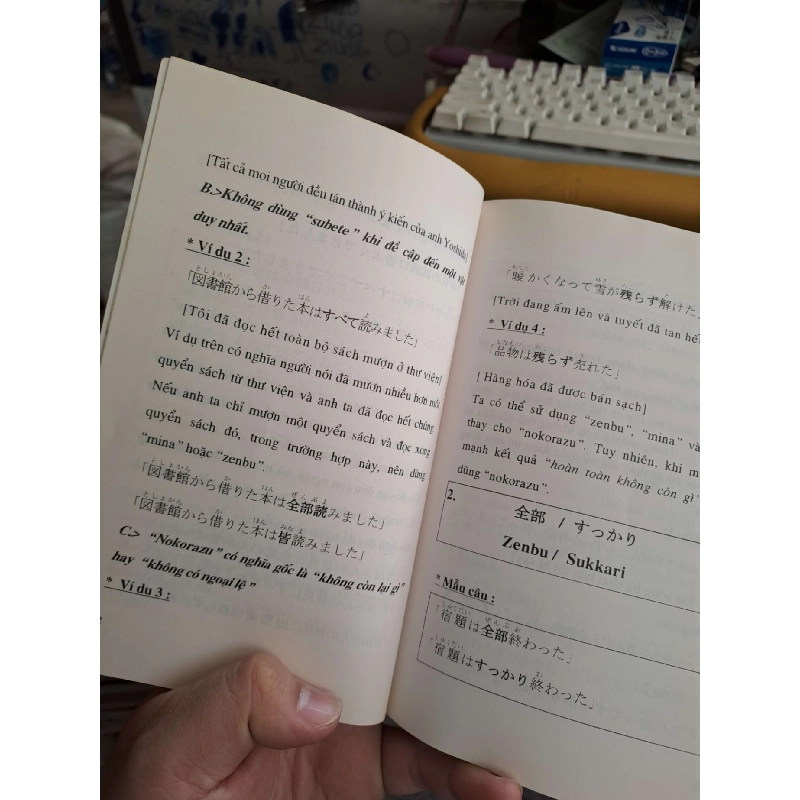 [Tất cả mọi người đều tán thành ý kiến của anh Yoshida]
B.>Không dùng “subete” khi đề cập đến một vật
duy nhất.
* Ví dụ 2 :
「図書館から借りた本はすべて読みました」
[Tôi đã đọc hết toàn bộ sách mượn ở thư viện]
Ví dụ trên có nghĩa người nói đã mươn nhiều hơn một
quyển sách từ thư viện và anh ta đã đọc hết chúng.
Nếu anh ta chỉ mượn một quyển sách và đọc xong
quyển sách đó, trong trường hợp này, nên dùng
“mina” hoặc “zenbu”.
「図書館から借りた本は全部読みました」
「図書館から借りた本は皆読みました」
C.> “Nokorazu” có nghĩa gốc là “không còn lại gì”
hay “không có ngoại lệ”
* Ví dụ 3 :
「暖かくなって雪が残らず解けた」
[Trời đang ấm lên và tuyết đã tan hết
* Ví dụ 4 :
「品物は残らず売れた」
[ Hàng hóa đã được bán sạch]
Ta có thể sử dụng “zenbu”, “mina” và
thay cho “nokorazu”. Tuy nhiên, khi m
mạnh kết quả “hoàn toàn không còn gì”
dùng “nokorazu”.
2.
全部 / すっかり
Zenbu / Sukkari
* Mẫu câu :
「宿題は全部終わった」
「宿題はすっかり終わった」